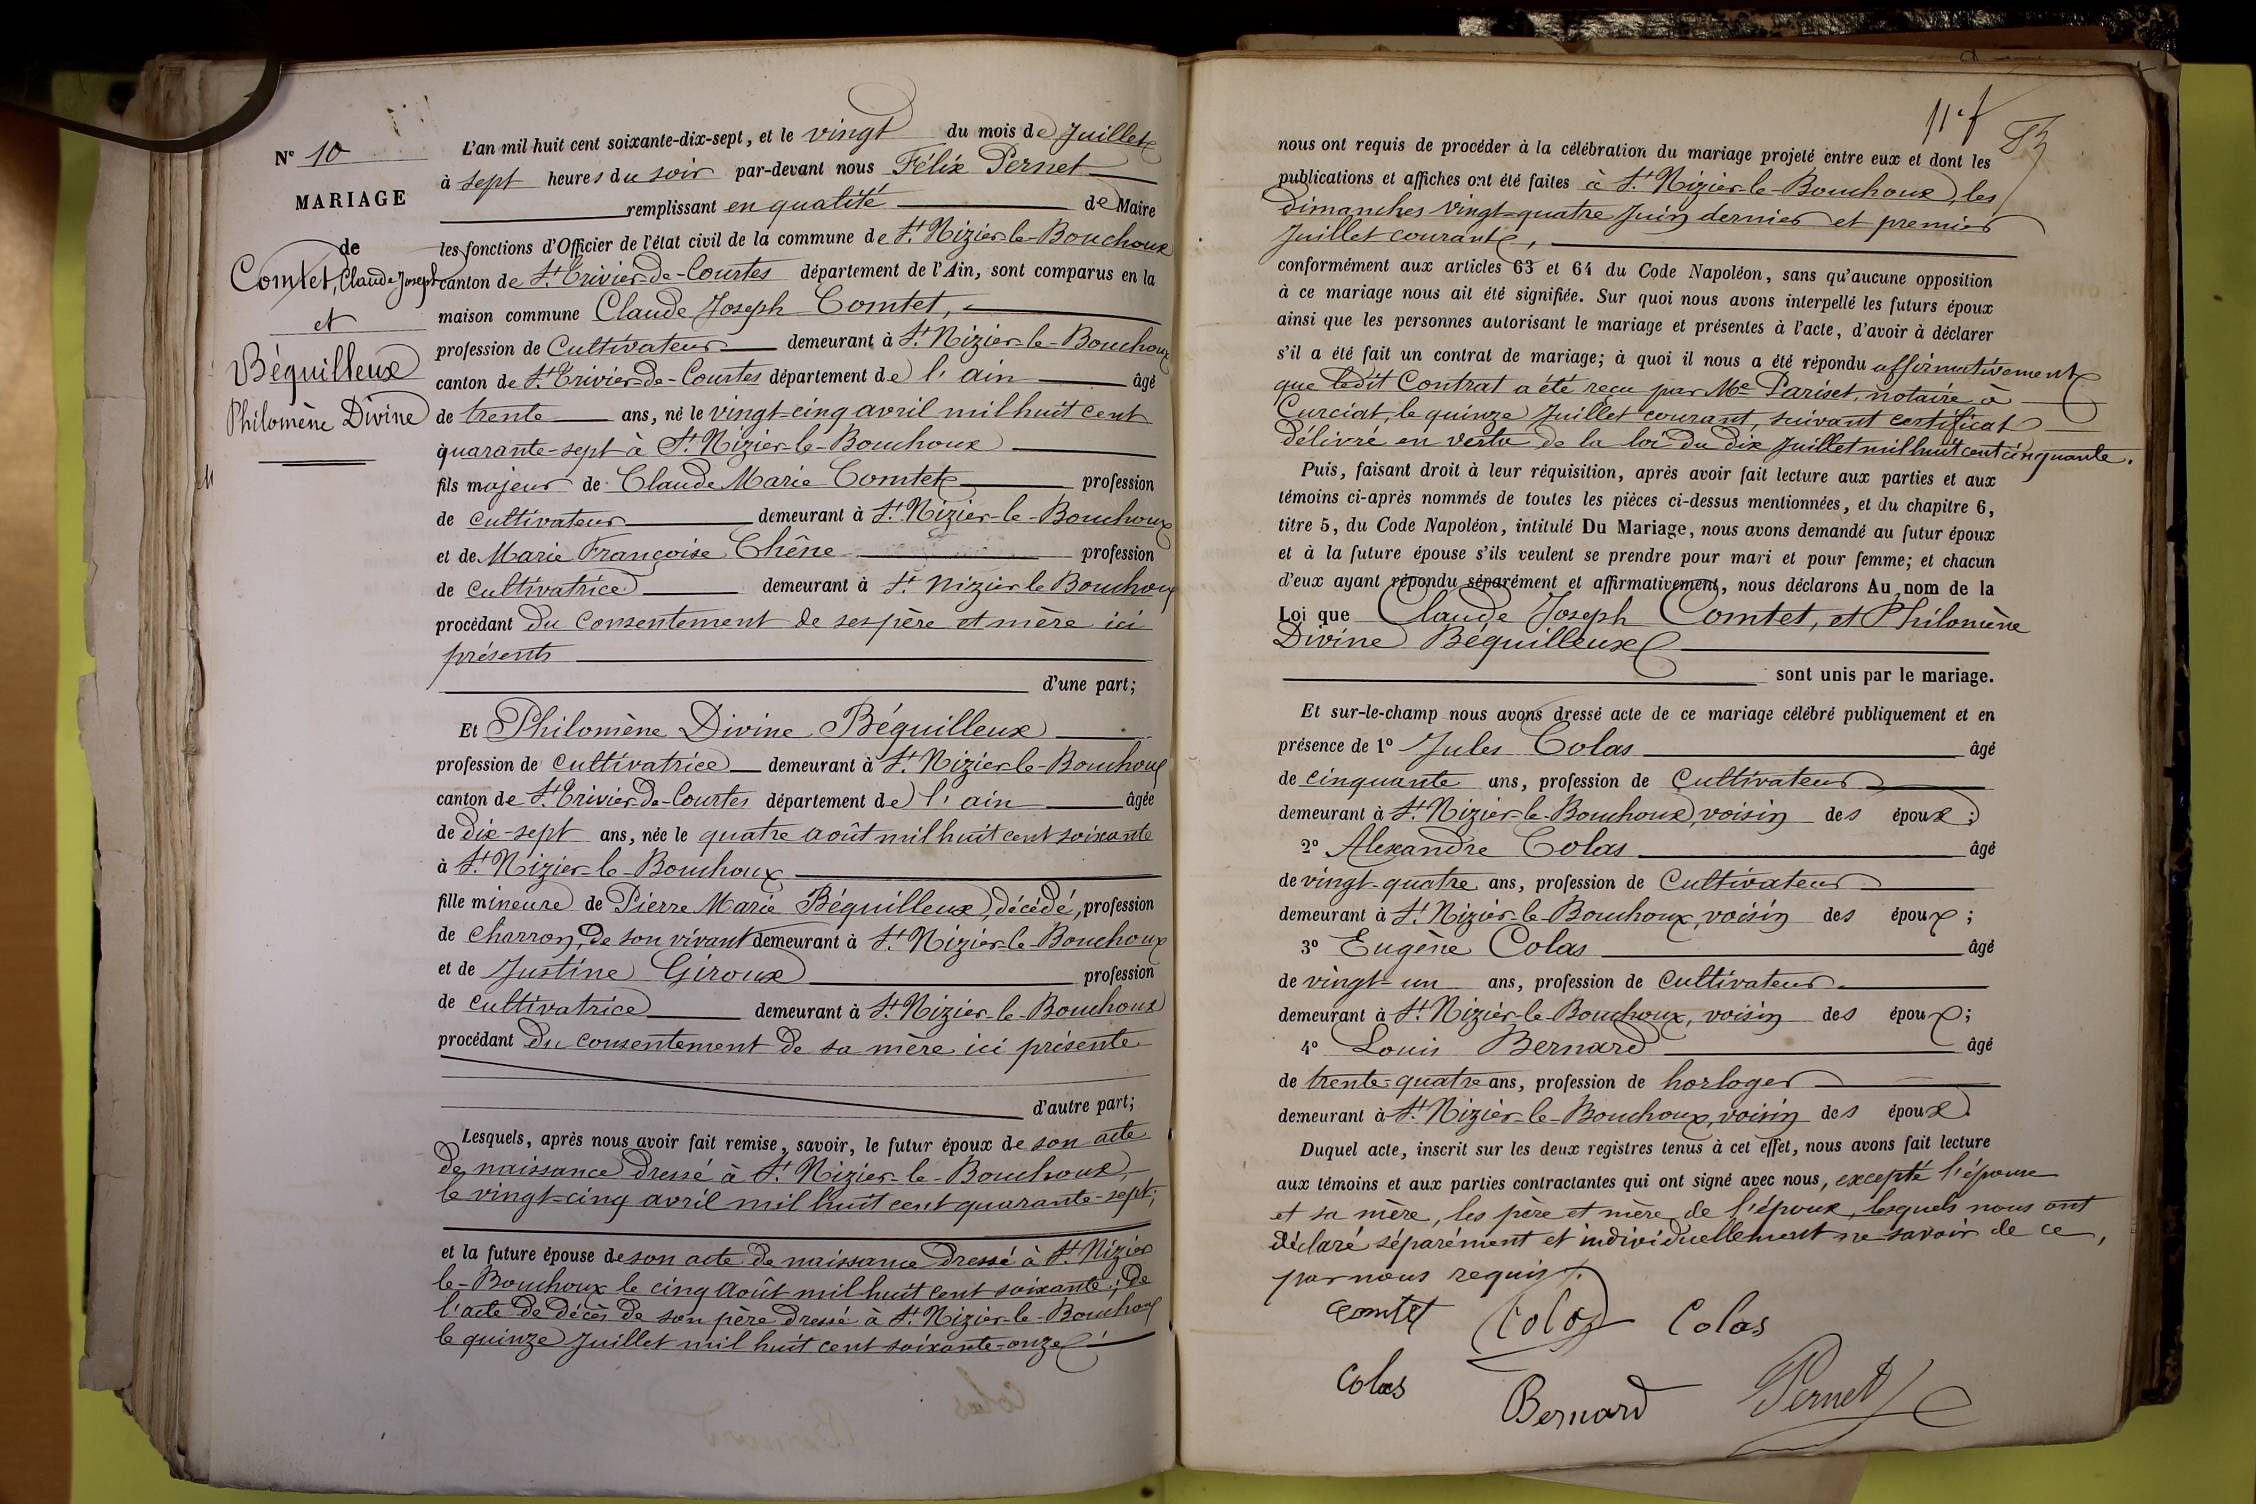 N° 10
MARIAGE
de
Comtet, Claude Joseph
et
Béquilleux
Philomène Divine
L'an mil huit cent soixante-dix-sept, et le vingt du mois de Juillet
à sept heures du soir par-devant nous Félix Pernet
remplissant en qualité de Maire
les fonctions d'Officier de l'état civil de la commune de St Nizier-le-Bouchoux
canton de St Trivier-de-Courtes département de l'Ain, sont comparus en la
maison commune Claude Joseph Comtet,
profession de Cultivateur demeurant à St Nizier-le-Bouchoux
canton de St Trivier-de-Courtes département de l'ain âgé
de trente ans, né le vingt-cinq avril mil huit cent
quarante-sept à St Nizier-le-Bouchoux
fils majeur de Claude Marie Comtet profession
de cultivateur demeurant à St Nizier-le-Bouchoux
et de Marie Françoise Chêne profession
de cultivatrice demeurant à St Nizier le Bouchoux
procédant du consentement de ses père et mère ici
présents
d'une part;
Et Philomène Divine Béquilleux
profession de cultivatrice demeurant à St Nizier-le-Bouchoux
canton de St Trivier-de-Courtes département de l'ain âgée
de dix-sept ans, née le quatre août mil huit cent soixante
à St Nizier-le-Bouchoux
fille mineure de Pierre Marie Béquilleux, décédé, profession
de charron, de son vivant demeurant à St Nizier-le-Bouchoux
et de Justine Giroux profession
de cultivatrice demeurant à St Nizier-le-Bouchoux
procédant du consentement de sa mère ici présente
d'autre part;
Lesquels, après nous avoir fait remise, savoir, le futur époux de son acte
de naissance dressé à St Nizier-le-Bouchoux,
le vingt-cinq avril mil huit cent quarante-sept;
et la future épouse de son acte de naissance dressé à St Nizier
le-Bouchoux le cinq août mil huit cent soixante; de
l'acte de décès de son père dressé à St Nizier-le-Bouchoux
le quinze Juillet mil huit cent soixante-onze
nous ont requis de procéder à la célébration du mariage projeté entre eux et dont les
publications et affiches ont été faites à St Nizier-le-Bouchoux, les
dimanches vingt-quatre Juin dernier et premier
Juillet courant,
conformément aux articles 63 et 64 du Code Napoléon, sans qu'aucune opposition
à ce mariage nous ait été signifiée. Sur quoi nous avons interpellé les futurs époux
ainsi que les personnes autorisant le mariage et présentes à l'acte, d'avoir à déclarer
s'il a été fait un contrat de mariage; à quoi il nous a été répondu affirmativement
que ledit Contrat a été reçu par Me Pariset, notaire à
Curciat, le quinze Juillet courant, suivant certificat
délivré en vertu de la loi du dix Juillet mil huit cent cinquante.
Puis, faisant droit à leur réquisition, après avoir fait lecture aux parties et aux
témoins ci-après nommés de toutes les pièces ci-dessus mentionnées, et du chapitre 6,
titre 5, du Code Napoléon, intitulé Du Mariage, nous avons demandé au futur époux
et à la future épouse s'ils veulent se prendre pour mari et pour femme; et chacun
d'eux ayant répondu séparément et affirmativement, nous déclarons Au nom de la
Loi que Claude Joseph Comtet, et Philomène
Divine Béquilleux
sont unis par le mariage.
Et sur-le-champ nous avons dressé acte de ce mariage célébré publiquement et en
présence de 1° Jules Colas âgé
de cinquante ans, profession de Cultivateur
demeurant à St Nizier-le-Bouchoux, voisin des époux;
2° Alexandre Colas âgé
de vingt-quatre ans, profession de Cultivateur
demeurant à St Nizier-le-Bouchoux, voisin des époux;
3° Eugène Colas âgé
de vingt-un ans, profession de Cultivateur
demeurant à St Nizier-le-Bouchoux, voisin des époux;
4° Louis Bernard âgé
de trente-quatre ans, profession de horloger
demeurant à St Nizier-le-Bouchoux, voisin des époux.
Duquel acte, inscrit sur les deux registres tenus à cet effet, nous avons fait lecture
aux témoins et aux parties contractantes qui ont signé avec nous, excepté l'épouse
et sa mère, les père et mère de l'époux, lesquels nous ont
déclaré séparément et individuellement ne savoir de ce,
par nous requis.
Comtet Colas Colas
Colas Bernard Pernet